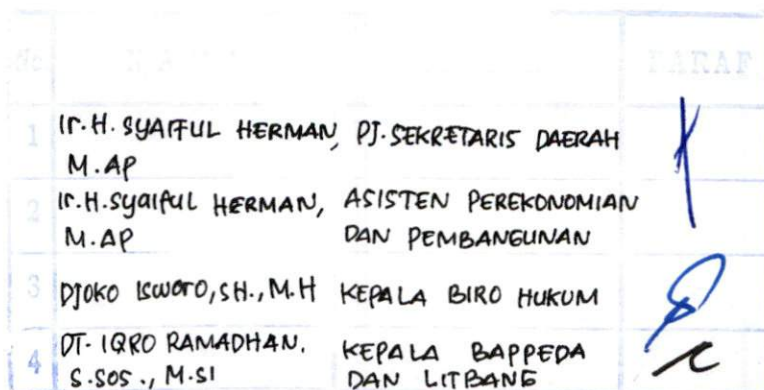 No N A M A PARAF
1 Ir. H. SYAIFUL HERMAN, PJ. SEKRETARIS DAERAH
M. AP
2 Ir. H. SyaifuL HERMAN, ASISTEN PEREKONOMIAN
M. AP DAN PEMBANGUNAN
3 DJOKO ISWORO, SH., M.H KEPALA BIRO HUKUM
4 DT. IQRO RAMADHAN. KEPALA BAPPEDA
S.SOS., M.SI DAN LITBANG